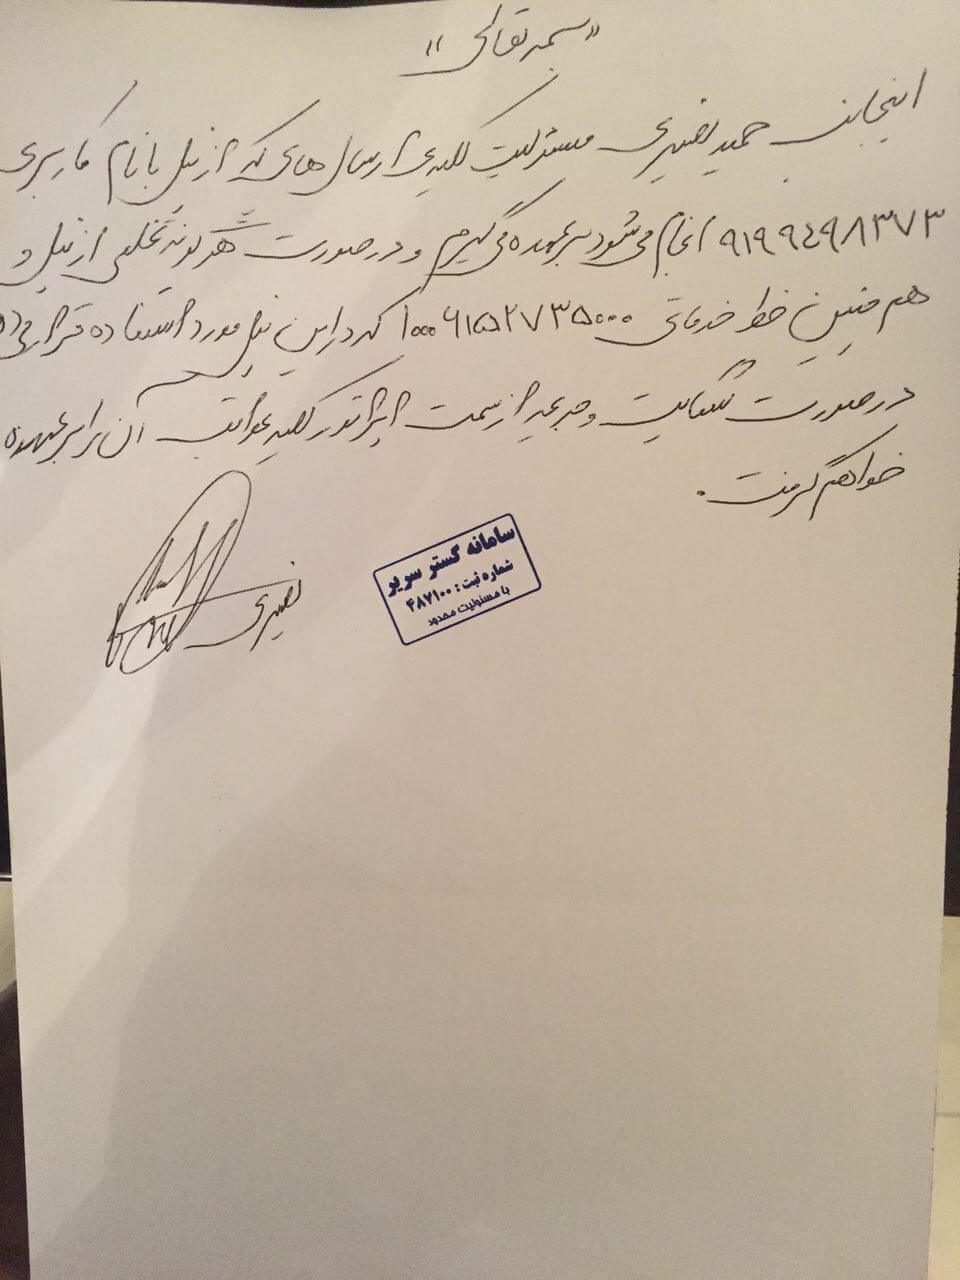 «بسمه تعالی»
اینجانب حمید نصیری مسئولیت کلیه ی ارسال های که از پنل با نام کاربری
۹۱۹۹۴۹۸۳۷۳ انجام می شود بر عهده می گیرم و در صورت هر گونه تخلفی از پنل و
هم چنین خط خدماتی که در این پنل مورد استفاده قرار می
در صورت شکایت و جریمه از سمت اپراتور کلیه عواقب آن را بر عهده
خواهم گرفت.
نصیری
سامانه گستر سریر
شماره ثبت : ۴۸۷۱۰۰
با مسئولیت محدود